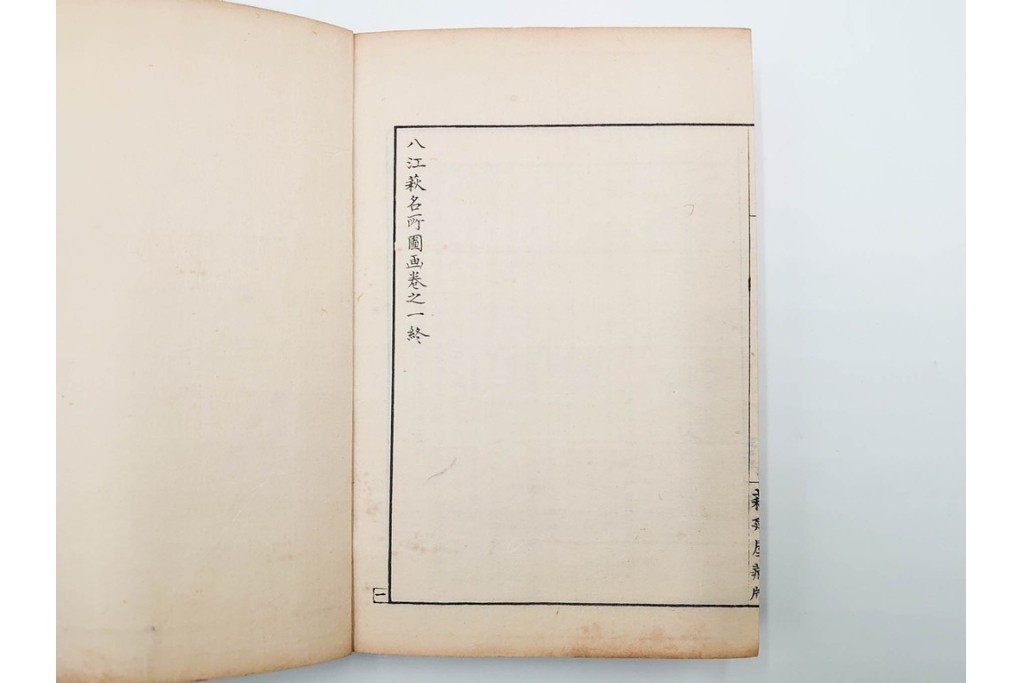 八江萩名所圖画卷之一終
一